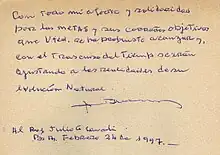 Con todo mi afecto y solidaridad
por las METAS y sus corazones objetivos
que Uted. se ha propuesto alcanzar y,
con el Transcurso del Tiempo serán
ajustando a las realidades de su
Evolución Natural.
Al Rey Julio C.
Bs As. Febrero 24 de 1997.-